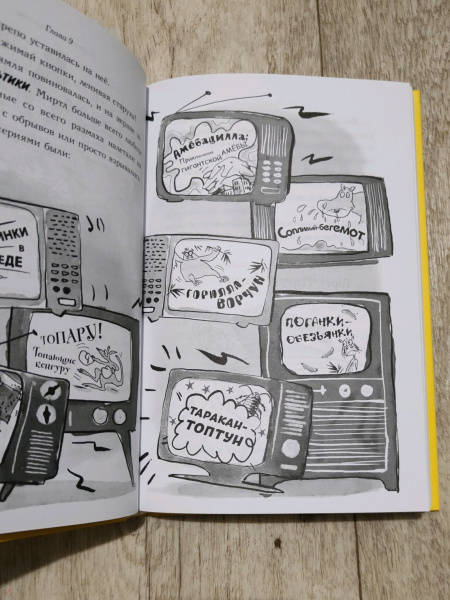 Глава 9
уставилась на неё.
жимай кнопки, ленивая старуха!
повиновалась, и на экране
ТИКИ. Мирта больше всего любила
со всего размаха налетали
с обрывов или просто взрывались
сериями были:
В
ТОПАРУ!
Топающие
кенгуру
Амёбадилла:
Приключения
гигантской АМЁБЫ
Сопливый бегемот
ГОРИЛЛА-
ВОРЧУН
ПОГАНКИ-
ОБЕЗЬЯНКИ
ТАРАКАН-
ТОПТУН